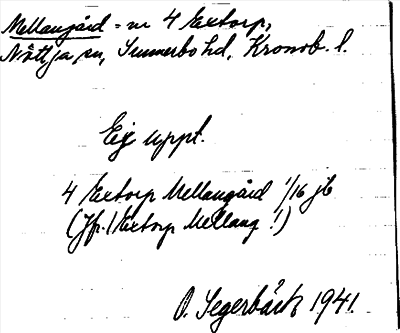 Mellangård = nr 4 Extorp,
Nöttja sn, Sunnerbo hd, Kronob. l.
Ej uppt.
4 Extorp Mellangård 1/16 jb
(Jfr. 1 Extorp Mellang !)
O. Segerbäck 1941.